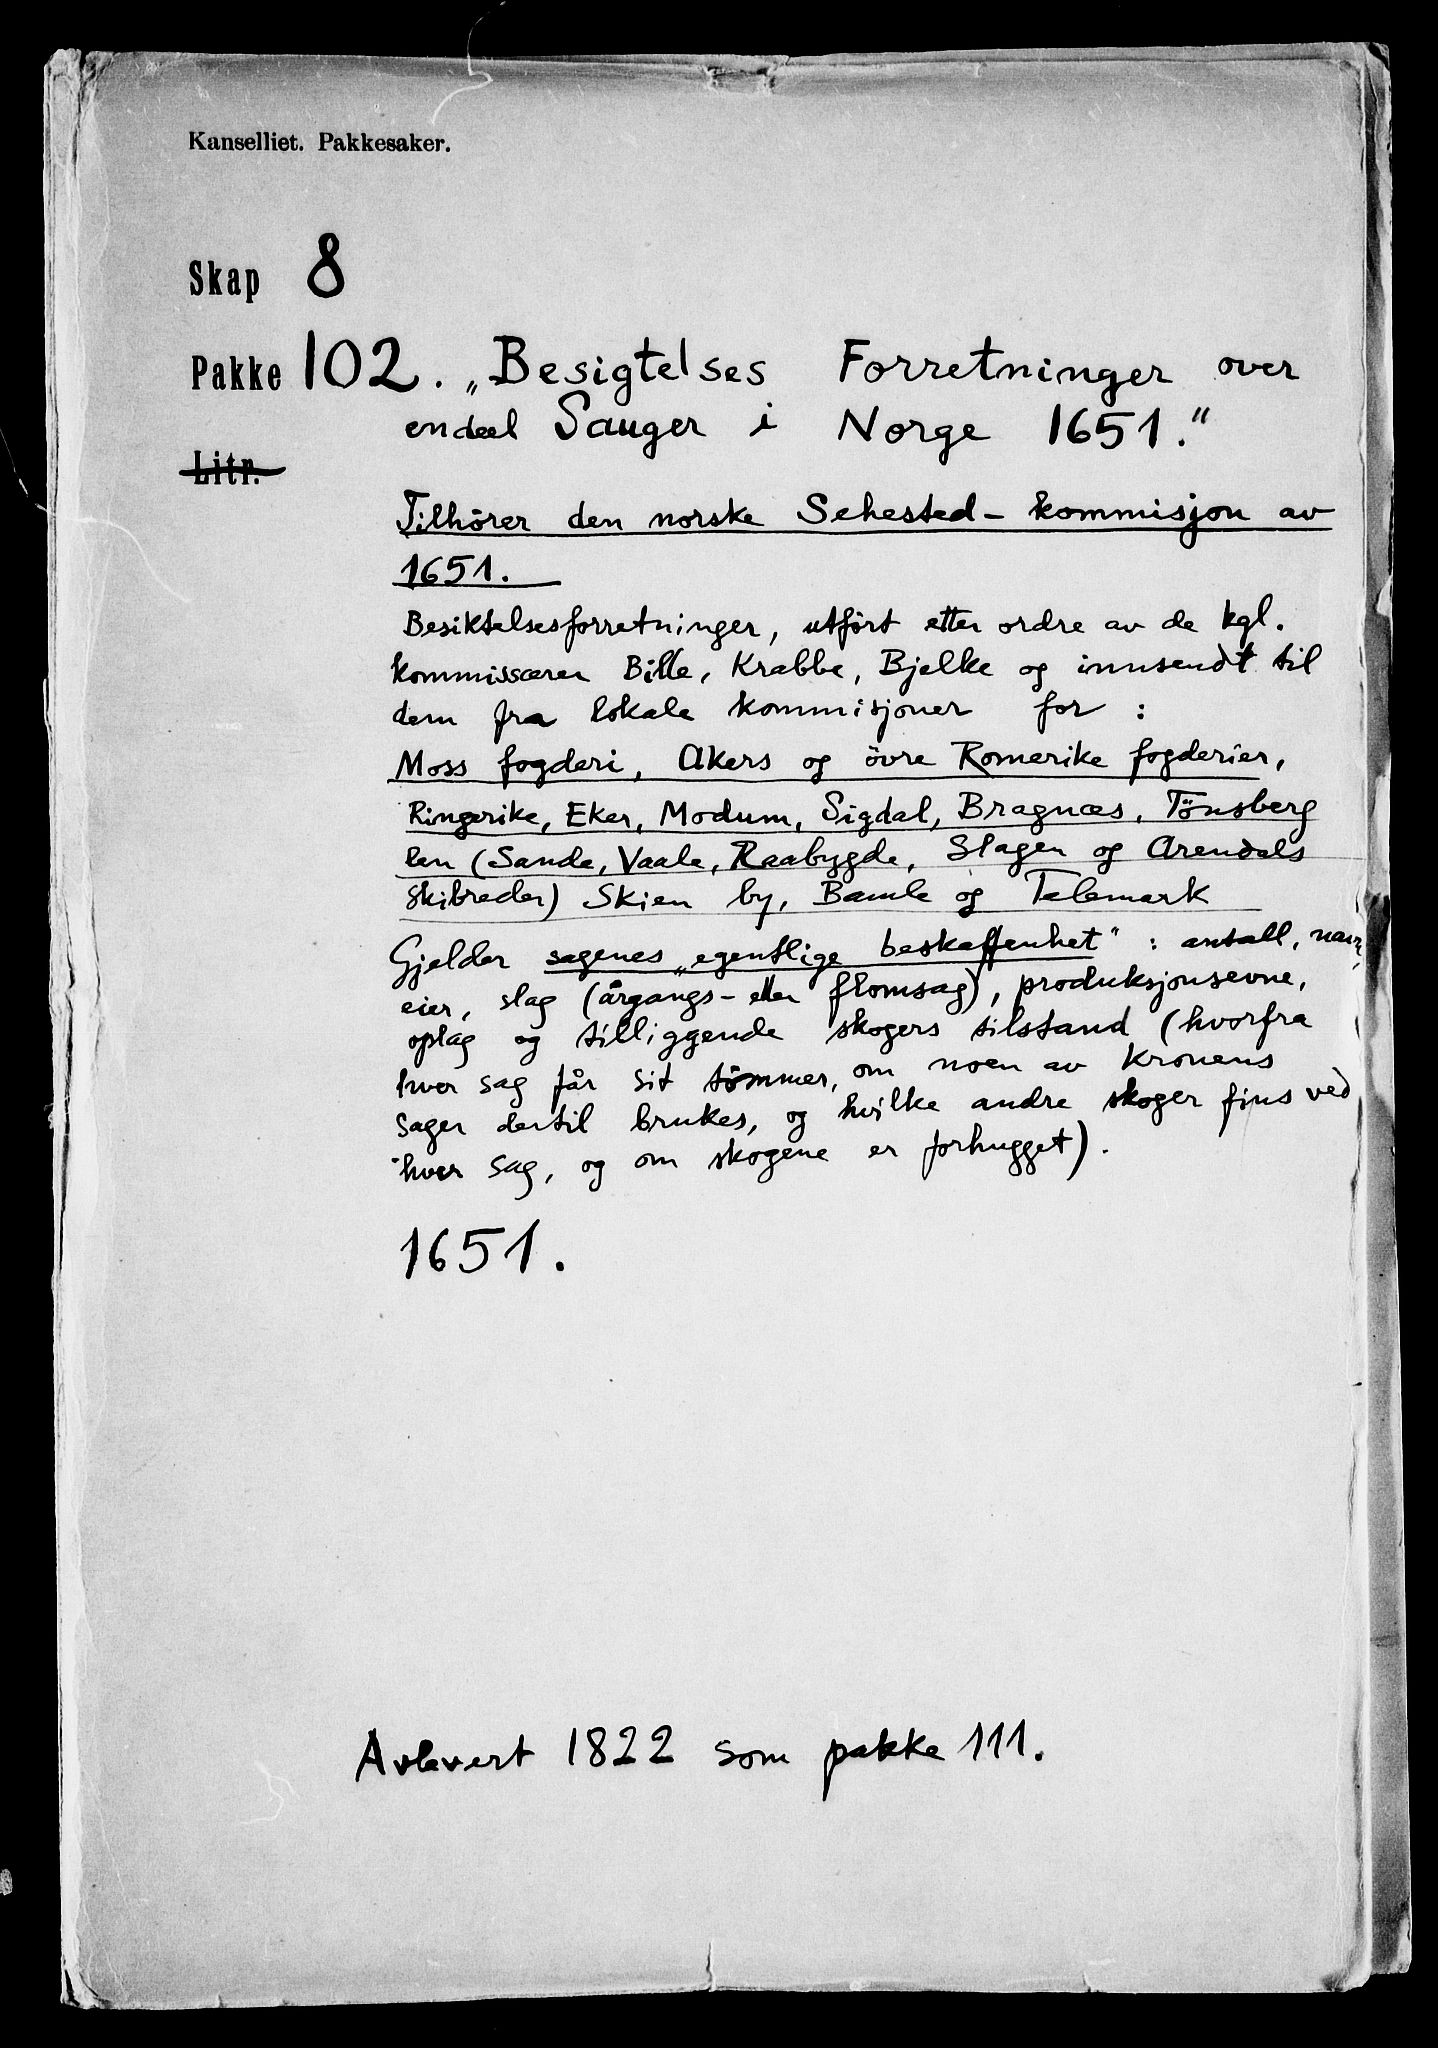 Kanselliet. Pakkesaker.
Skap 8
Pakke 102. „Besigtelses Forretninger over
endeel Sauger i Norge 1651.“
Litr.
Tilhörer den norske Sehested-kommisjon av
1651.
Besiktelsesforretninger, utfört etter ordre av de kgl.
kommissærer Bille, Krabbe, Bjelke og innsendt til
dem fra lokale kommisjoner for :
Moss fogderi, Akers og övre Romerike fogderier,
Ringerike, Eker, Modum, Sigdal, Bragnæs, Tönsberg
len (Sande, Vaale, Raabygde, Slagen og Arendals
skibreder) Skien by, Bamle og Telemark
Gjelder sagenes „egentlige beskaffenhet“ : antall, navn,
eier, slag (årgangs- eller flomsag), produksjonsevne,
oplag og tilliggende skogers tilstand (hvorfra
hver sag får sit tömmer, om noen av Kronens
sager dertil brukes, og hvilke andre skoger fins ved
hver sag, og om skogene er forhugget).
1651.
Avlevert 1822 som pakke 111.